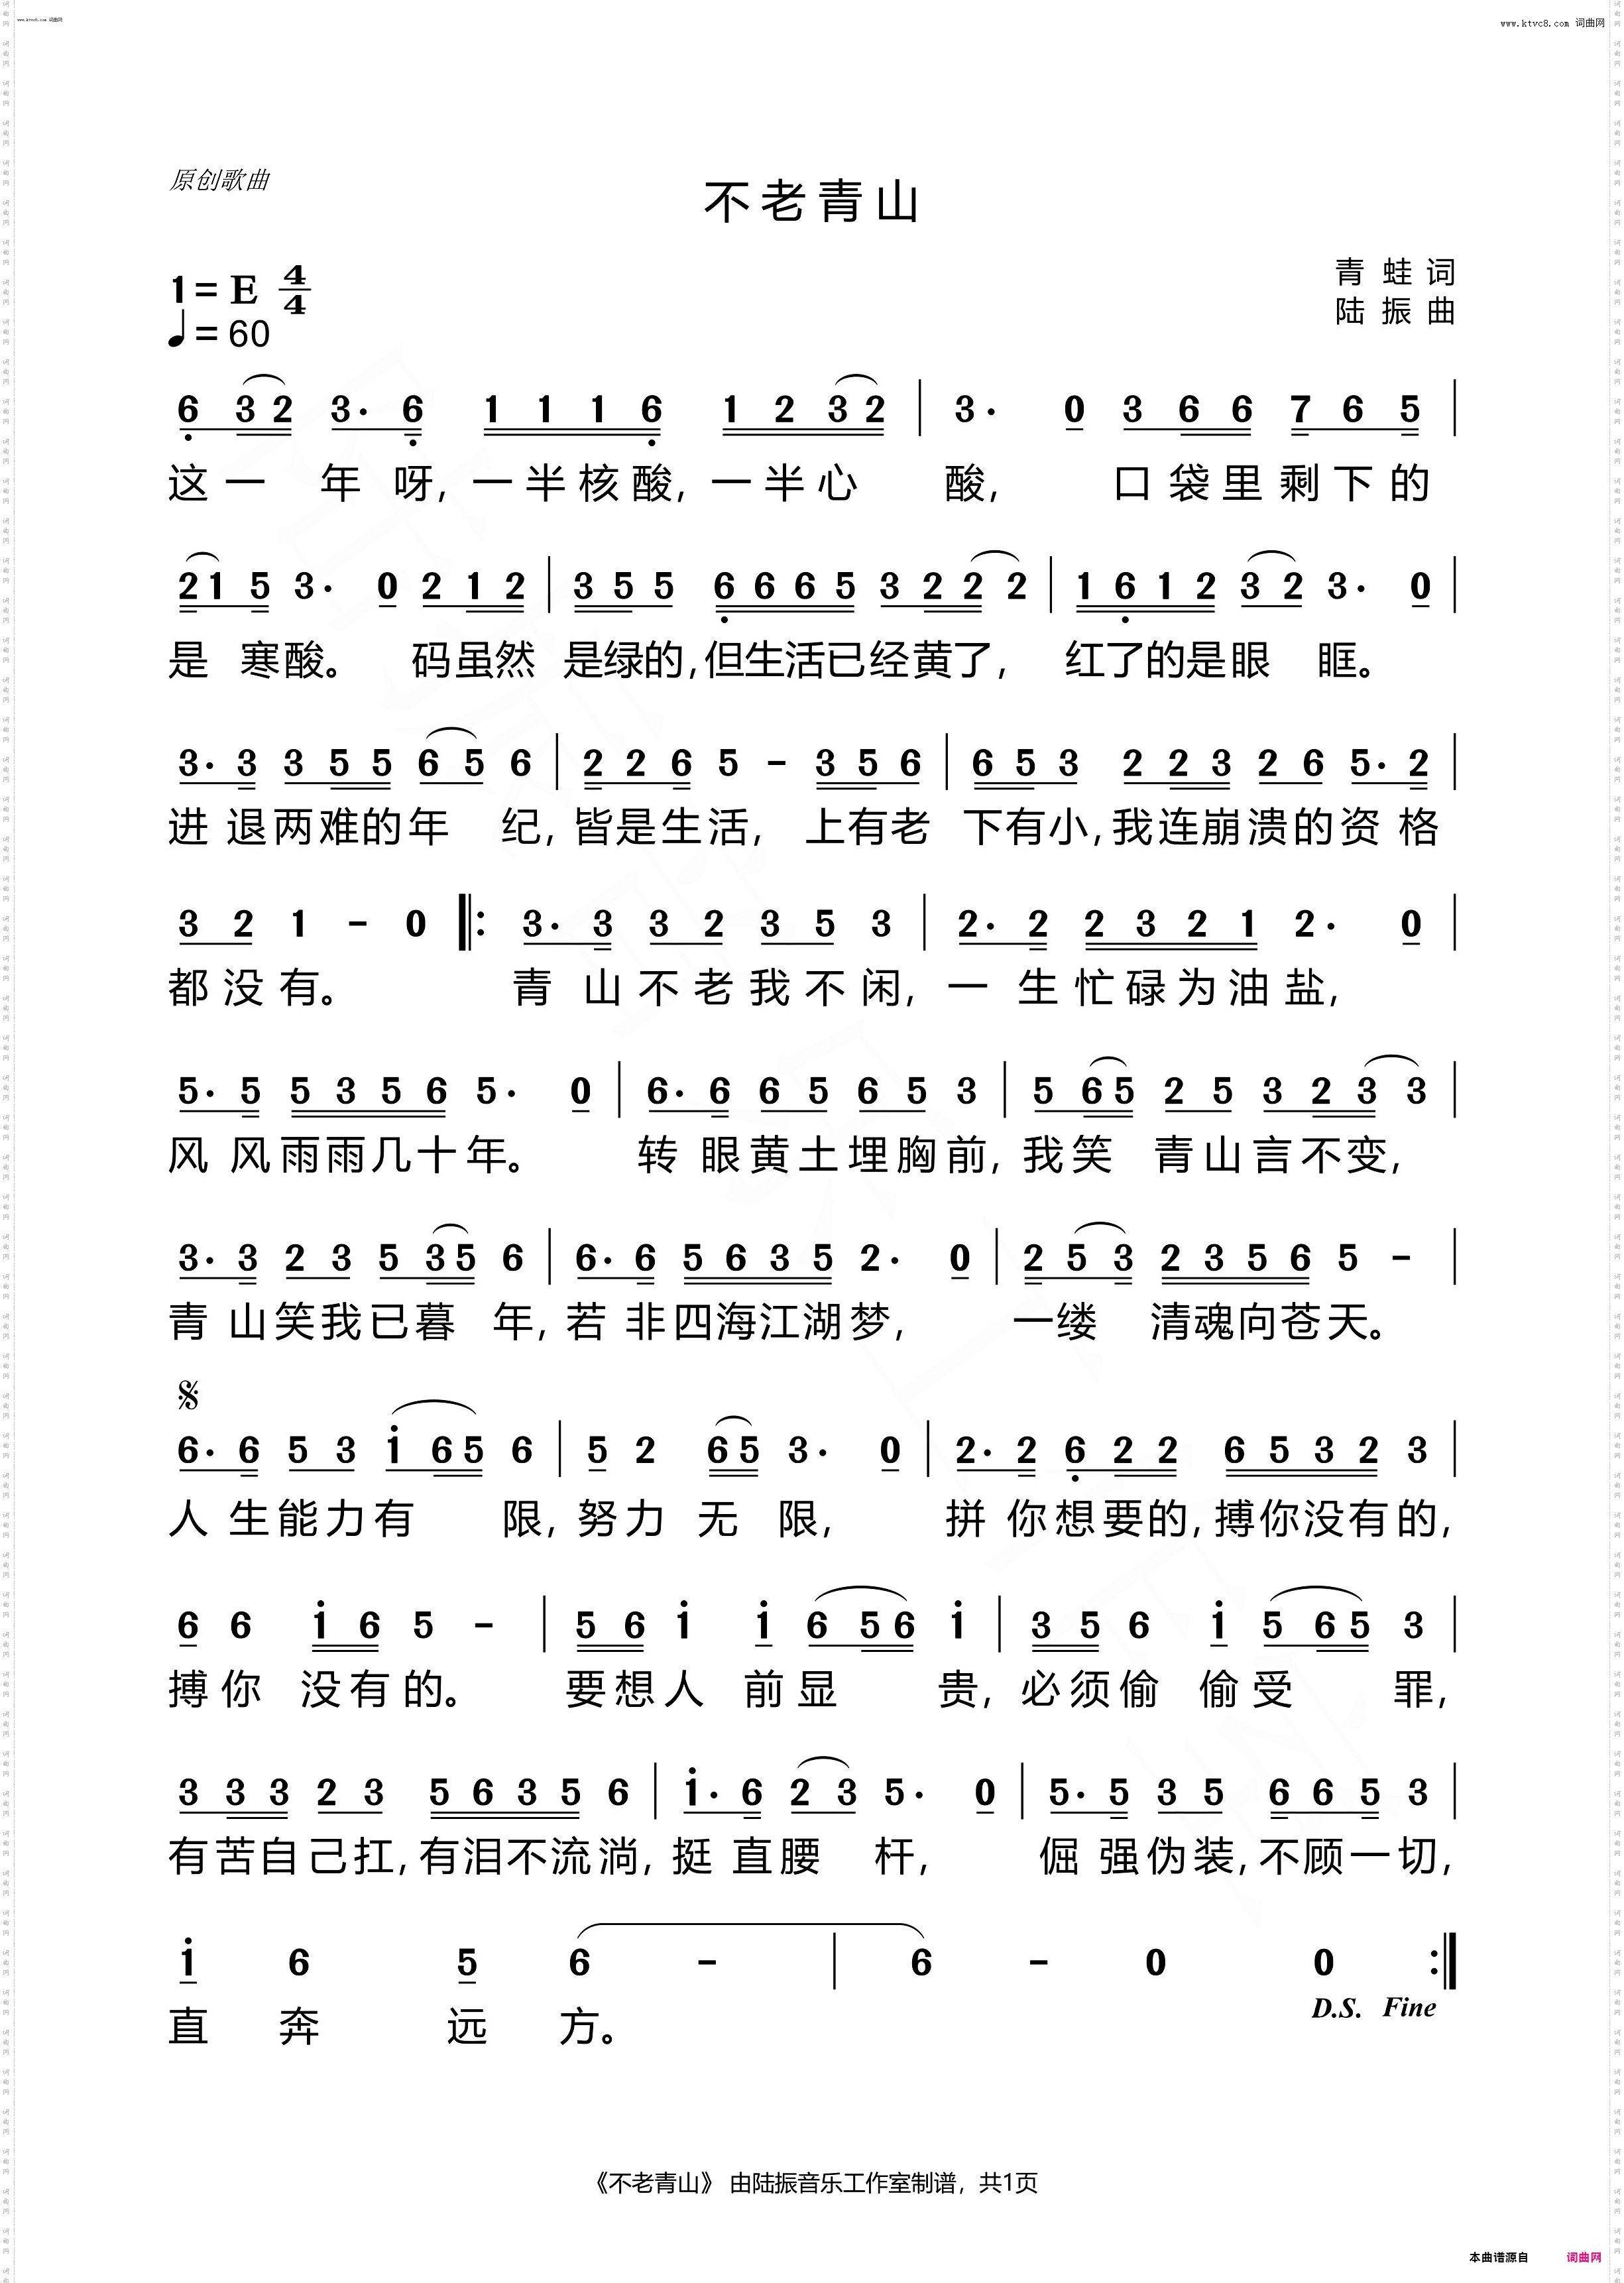 www.ktvc8.com 词曲网
www.ktvc8.com 词曲网
原创歌曲
不老青山
1= E 4/4
♩= 60
青 蛙 词
陆 振 曲
6 3 2 3· 6 1 1 1 6 1 2 3 2 | 3· 0 3 6 6 7 6 5 |
这一 年 呀, 一半核酸, 一半心 酸, 口袋里剩下的
2 1 5 3· 0 2 1 2 | 3 5 5 6 6 6 5 3 2 2 2 | 1 6 1 2 3 2 3· 0 |
是 寒酸。 码虽然 是绿的, 但生活已经黄了, 红了的是眼 眶。
3· 3 3 5 5 6 5 6 | 2 2 6 5 - 3 5 6 | 6 5 3 2 2 3 2 6 5· 2 |
进 退两难的年 纪, 皆是生活, 上有老 下有小, 我连崩溃的资 格
3 2 1 - 0 ‖: 3· 3 3 2 3 5 3 | 2· 2 2 3 2 1 2· 0 |
都没有。 青 山不老我不闲, 一 生忙碌为油盐,
5· 5 5 3 5 6 5· 0 | 6· 6 6 5 6 5 3 | 5 6 5 2 5 3 2 3 3 |
风 风雨雨几十年。 转 眼黄土埋胸前, 我笑 青山言不变,
3· 3 2 3 5 3 5 6 | 6· 6 5 6 3 5 2· 0 | 2 5 3 2 3 5 6 5 - |
青 山笑我已暮 年, 若 非四海江湖梦, 一缕 清魂向苍天。
6· 6 5 3 i 6 5 6 | 5 2 6 5 3· 0 | 2· 2 6 2 2 6 5 3 2 3 |
人 生能力有 限, 努力 无 限, 拼 你想要的, 搏你没有的,
6 6 i 6 5 - | 5 6 i i 6 5 6 i | 3 5 6 i 5 6 5 3 |
搏你 没有的。 要想人 前显 贵, 必须偷 偷受 罪,
3 3 3 2 3 5 6 3 5 6 | i· 6 2 3 5· 0 | 5· 5 3 5 6 6 5 3 |
有苦自己扛, 有泪不流淌, 挺 直腰 杆, 倔 强伪装, 不顾一切,
i 6 5 6 - | 6 - 0 0 :‖
直 奔 远 方。
D.S. Fine
《不老青山》 由陆振音乐工作室制谱，共1页
本曲谱源自 词曲网